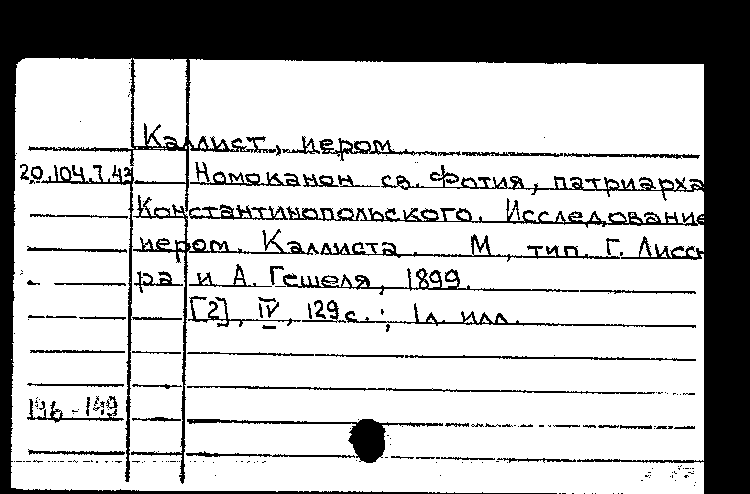 Каллист, иером.
20.104.7.43 Номоканон св. Фотия, патриарха
Константинопольского. Исследование
иером. Каллиста. М, тип. Г. Лисс
ра и А. Гешеля, 1899.
[2], IV, 129 с.; 1л. илл.
196-149